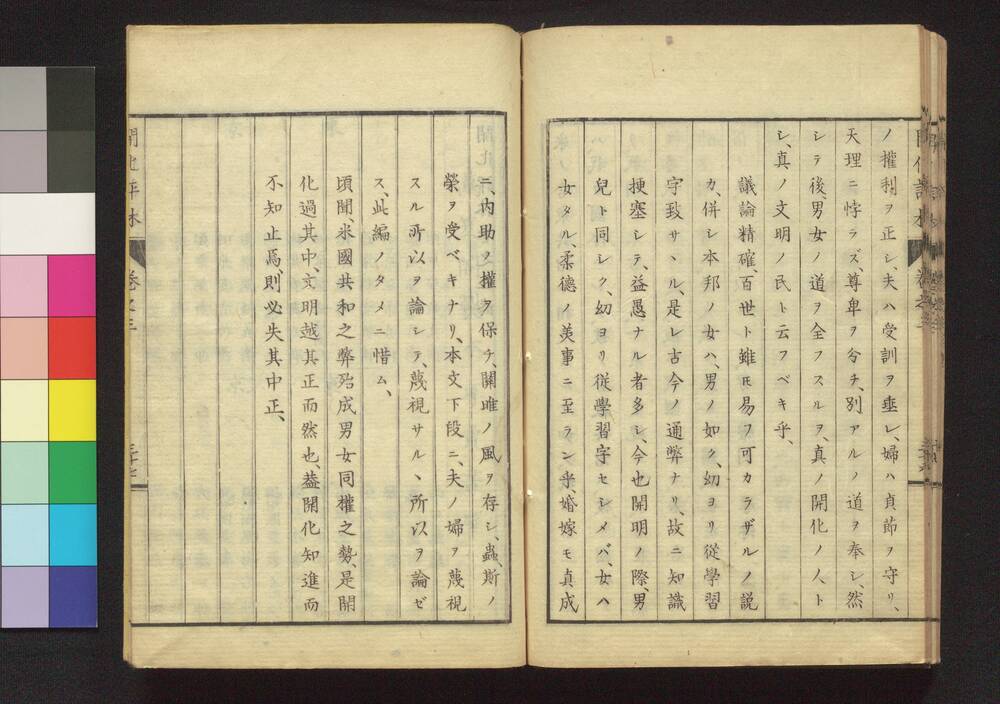 ノ權利ヲ正シ、夫ハ受訓ヲ垂レ、婦ハ貞節ヲ守リ、
天理ニ悖ラズ、尊卑ヲ分チ、別アルノ道ヲ奉シ、然
シテ後、男女ノ道ヲ全フスルヲ、真ノ開化ノ人ト
シ、真ノ文明ノ民ト云フベキ乎、
議論精確、百世ト雖𪜈易フ可カラザルノ説
カ、併シ本邦ノ女ハ、男ノ如ク、幼ヨリ從學習
字致サヽル、是レ古今ノ通弊ナリ、故ニ知識
梗塞シテ、益愚ナル者多シ、今也開明ノ際、男
兒ト同シク、幼ヨリ従學習字セシメバ、女ハ
女タル、柔德ノ美事ニ至ラン乎、婚嫁モ真成
ニ、内助ノ權ヲ保チ、關雎ノ風ヲ存シ、螽斯ノ
榮ヲ受ベキナリ、本文下段ニ、夫ノ婦ヲ蔑視
スル所以ヲ論シテ、蔑視サルヽ所以ヲ論ゼ
ス、此編ノタメニ惜ム、
頃聞、米國共和之弊殆成男女同權之勢、是開
化過其中、文明越其正而然也、葢開化知進而
不知止焉、則必失其中正、
開化評林
卷之三